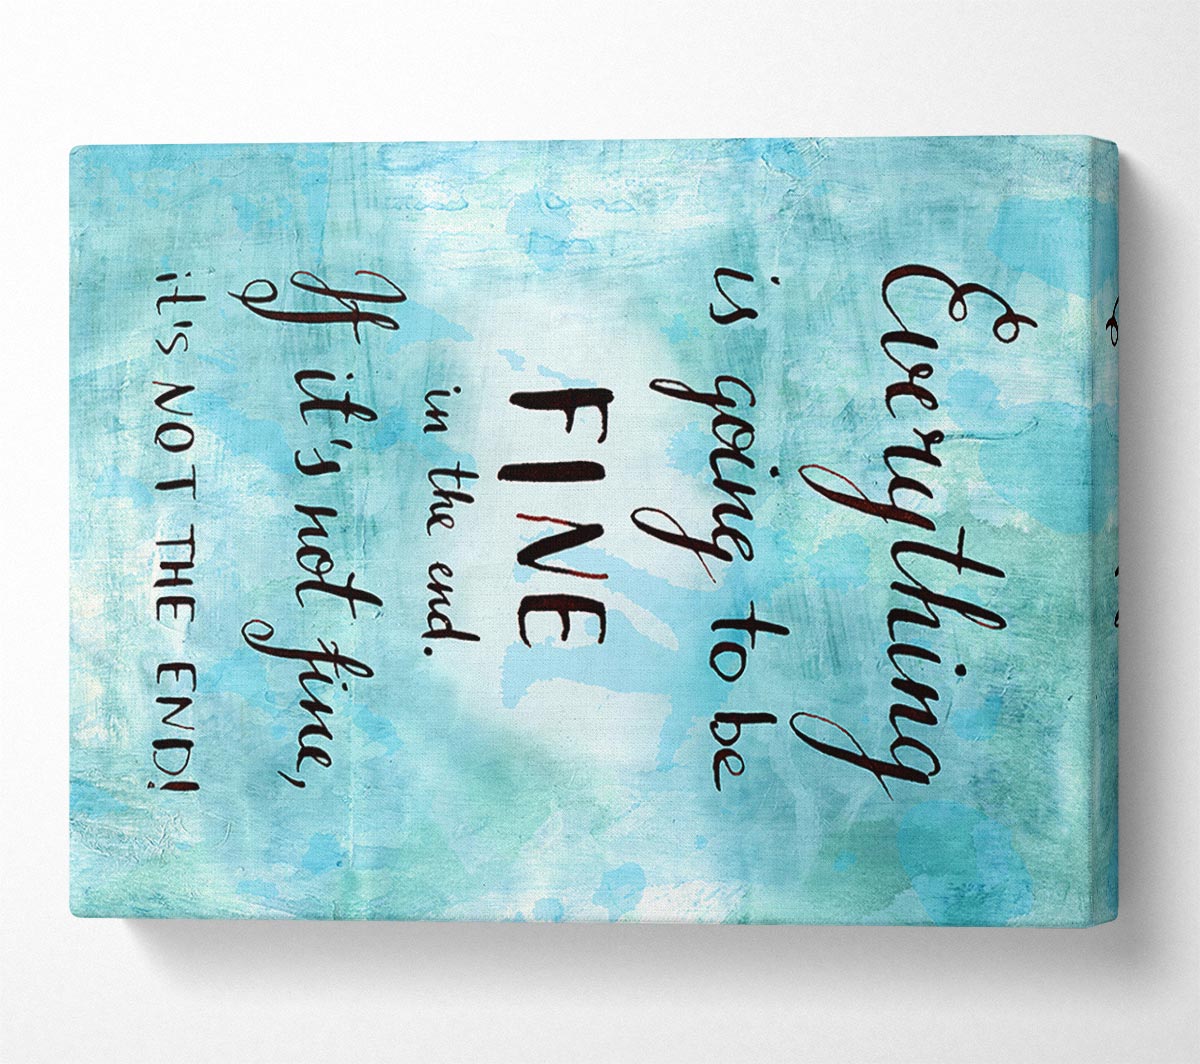 Everything
is going to be
FINE
in the end.
If it's not fine,
it's NOT THE END!